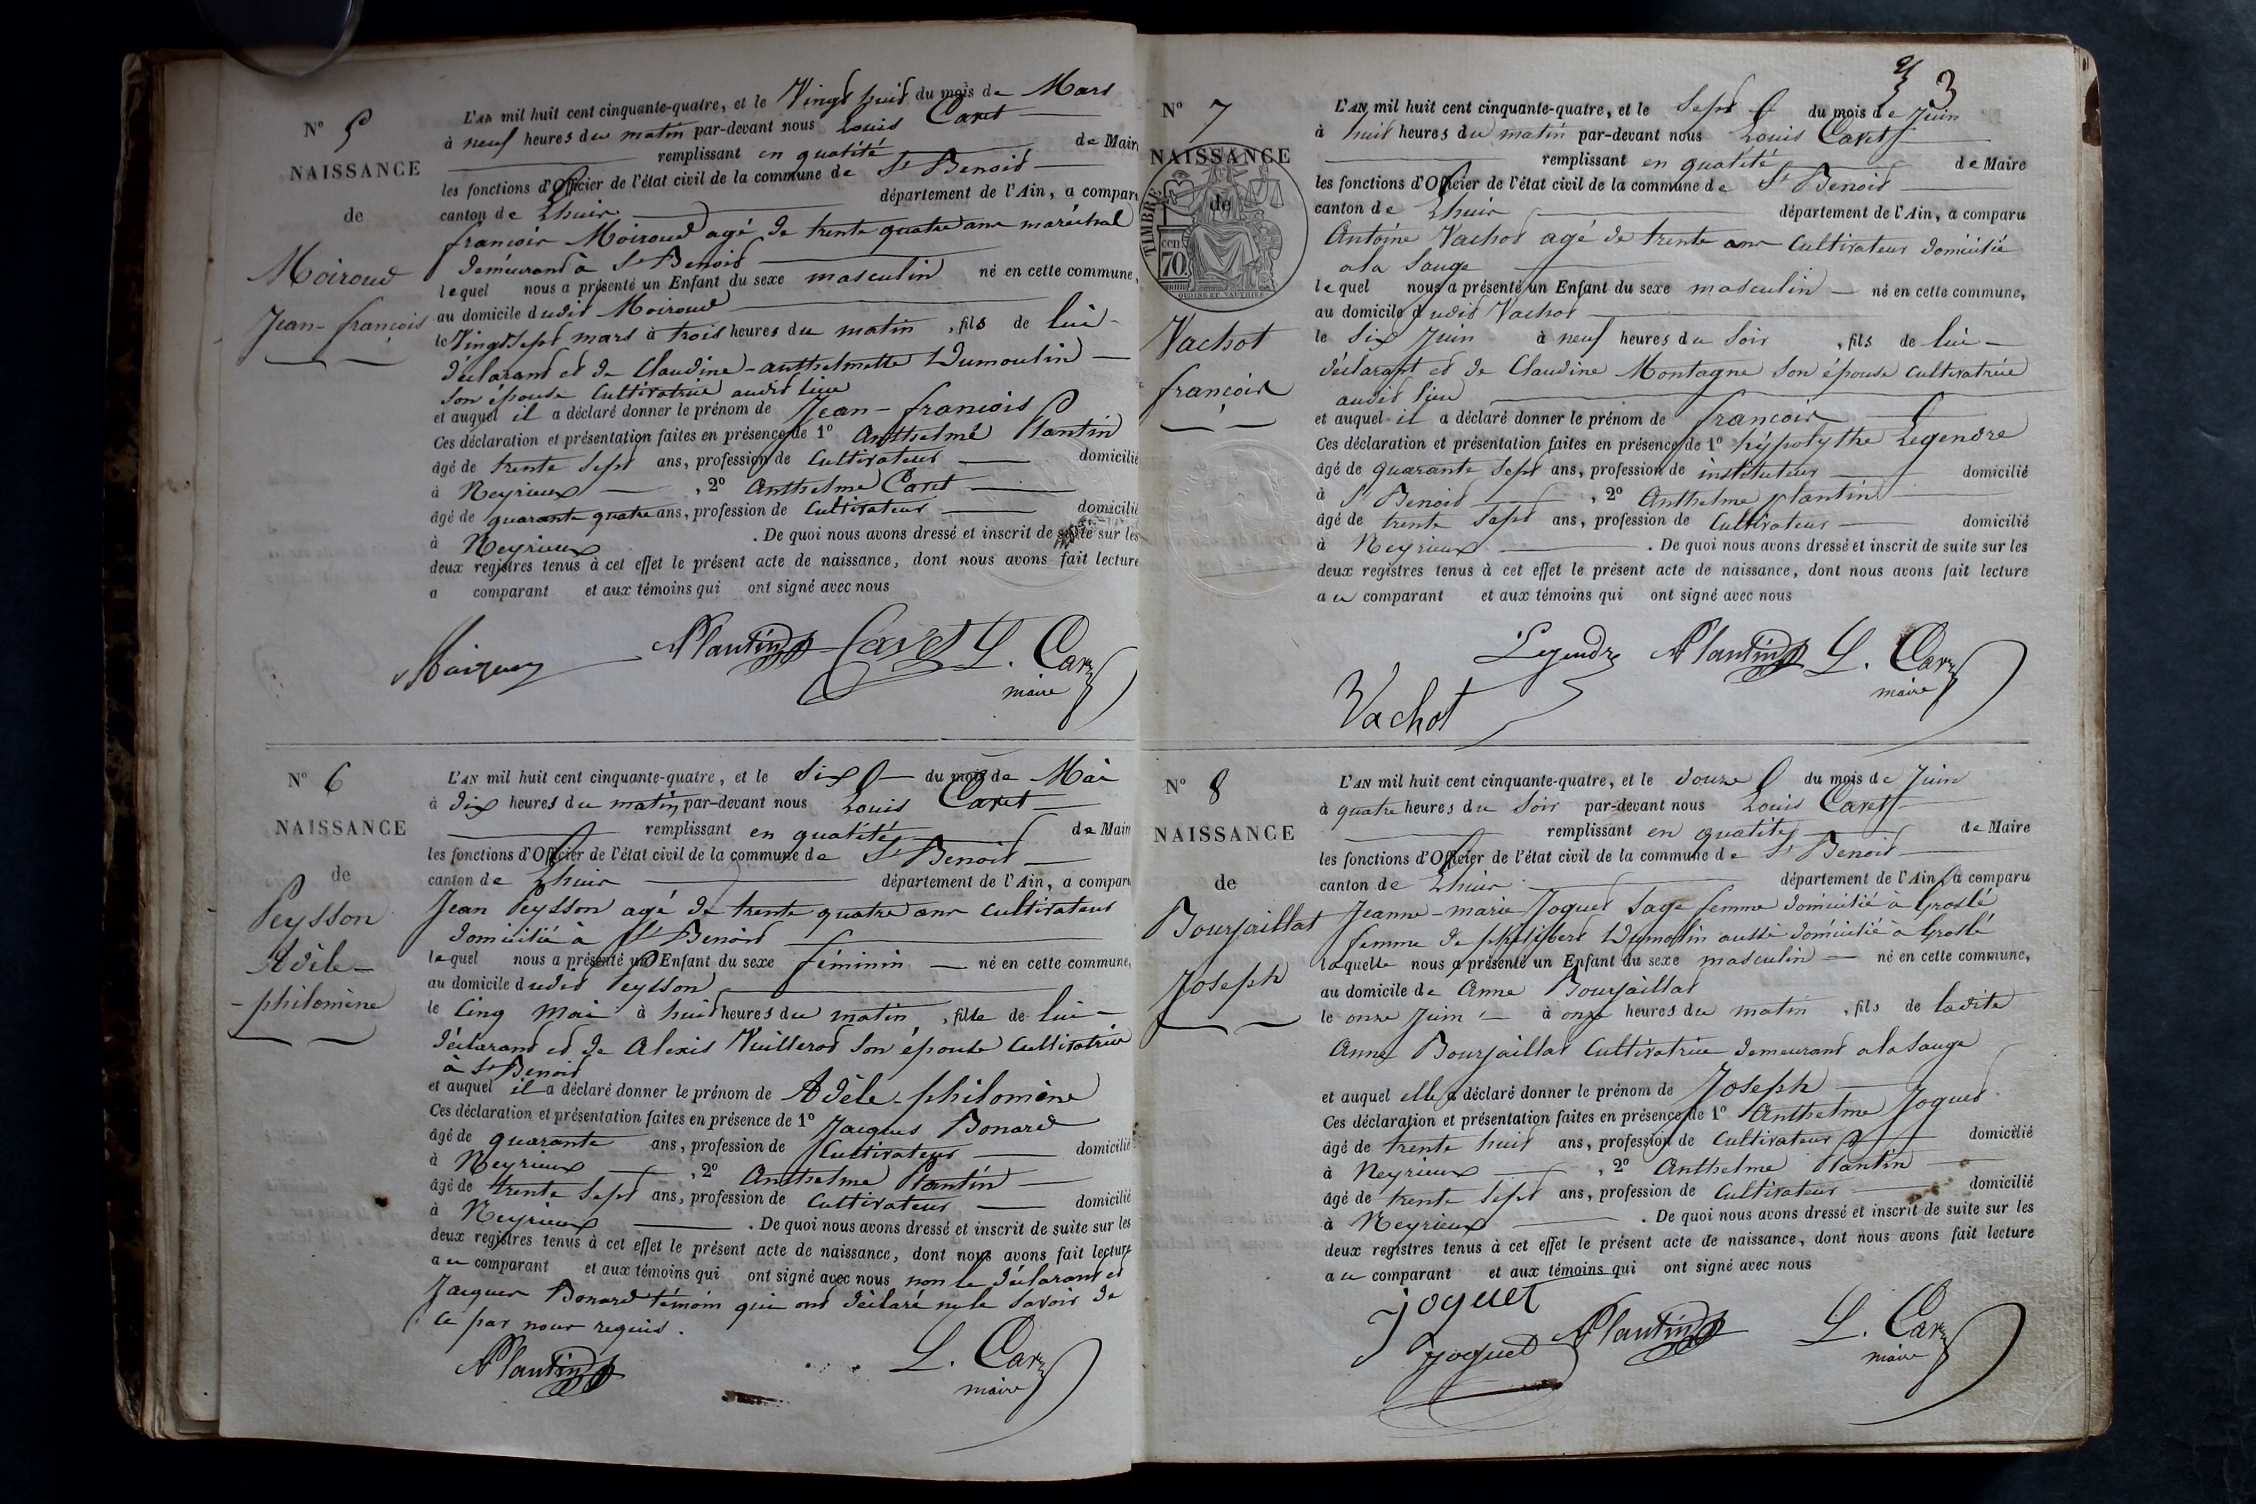 N° 5
NAISSANCE
de
Moiroud
Jean-françois
L'AN mil huit cent cinquante-quatre, et le Vingt huit du mois de Mars
à neuf heures du matin par-devant nous Louis Caret
remplissant en qualité de Maire
les fonctions d'Officier de l'état civil de la commune de St Benoit
canton de Lhuis département de l'Ain, a comparu
françois Moiroud agé de trente quatre ans maréchal
demeurant à St Benoit
lequel nous a présenté un Enfant du sexe masculin né en cette commune,
au domicile dudit Moiroud
le Vingt Sept mars à trois heures du matin, fils de lui
déclarant et de Claudine-anthelmette Dumoulin
son épouse Cultivatrice audit lieu
et auquel il a déclaré donner le prénom de Jean-françois
Ces déclaration et présentation faites en présence de 1° Anthelme Plantin
âgé de trente Sept ans, profession de Cultivateur domicilié
à Neyrieux, 2° Anthelme Caret
âgé de quarante quatre ans, profession de Cultivateur domicilié
à Neyrieux. De quoi nous avons dressé et inscrit de suite sur les
deux registres tenus à cet effet le présent acte de naissance, dont nous avons fait lecture
a comparant et aux témoins qui ont signé avec nous
APlantin Caret L. Caret
maire
N° 6
NAISSANCE
de
Peysson
Adèle-
-philomène
L'AN mil huit cent cinquante-quatre, et le Six du mois de Mai
à dix heures du matin par-devant nous Louis Caret
remplissant en qualité de Maire
les fonctions d'Officier de l'état civil de la commune de St Benoit
canton de Lhuis département de l'Ain, a comparu
Jean Peysson agé de trente quatre ans Cultivateur
domicilié à St Benoit
lequel nous a présenté un Enfant du sexe féminin né en cette commune,
au domicile dudit Peysson
le Cinq Mai à huit heures du matin, fille de lui
déclarant et de Alexis Vuillerod Son épouse Cultivatrice
à St Benoit
et auquel il a déclaré donner le prénom de Adèle-philomène
Ces déclaration et présentation faites en présence de 1° Jacques Bonard
âgé de quarante ans, profession de Cultivateur domicilié
à Neyrieux, 2° Anthelme Plantin
âgé de trente Sept ans, profession de Cultivateur domicilié
à Neyrieux. De quoi nous avons dressé et inscrit de suite sur les
deux registres tenus à cet effet le présent acte de naissance, dont nous avons fait lecture
au comparant et aux témoins qui ont signé avec nous non le déclarant et
Jacques Bonard témoin qui ont déclaré ne le Savoir de
ce par nous requis.
APlantin L. Caret
maire
3
N° 7
NAISSANCE
de
TIMBRE
70
Vachot
françois
L'AN mil huit cent cinquante-quatre, et le Sept du mois de Juin
à huit heures du matin par-devant nous Louis Caret
remplissant en qualité de Maire
les fonctions d'Officier de l'état civil de la commune de St Benoit
canton de Lhuis département de l'Ain, a comparu
Antoine Vachot agé de trente ans Cultivateur domicilié
à la Sauge
lequel nous a présenté un Enfant du sexe masculin né en cette commune,
au domicile dudit Vachot
le Six Juin à neuf heures du Soir, fils de lui
déclarant et de Claudine Montagne Son épouse Cultivatrice
audit lieu
et auquel il a déclaré donner le prénom de françois
Ces déclaration et présentation faites en présence de 1° hÿpolythe Legendre
âgé de quarante Sept ans, profession de instituteur domicilié
à St Benoit, 2° Anthelme plantin
âgé de trente Sept ans, profession de Cultivateur domicilié
à Neyrieux. De quoi nous avons dressé et inscrit de suite sur les
deux registres tenus à cet effet le présent acte de naissance, dont nous avons fait lecture
au comparant et aux témoins qui ont signé avec nous
Legendre APlantin L. Caret
maire
Vachot
N° 8
NAISSANCE
de
Bourjaillat
Joseph
L'AN mil huit cent cinquante-quatre, et le douze du mois de Juin
à quatre heures du Soir par-devant nous Louis Caret
remplissant en qualité de Maire
les fonctions d'Officier de l'état civil de la commune de St Benoit
canton de Lhuis département de l'Ain, a comparu
Jeanne-marie Joguet Sage femme domiciliée à Groslé
femme de philibert Dumolin aussi domicilié à Groslé
laquelle nous a présenté un Enfant du sexe masculin né en cette commune,
au domicile de Anne Bourjaillat
le onze Juin à onze heures du matin, fils de ladite
Anne Bourjaillat Cultivatrice demeurant à la Sauge
et auquel elle a déclaré donner le prénom de Joseph
Ces déclaration et présentation faites en présence de 1° Anthelme Joguet
âgé de trente huit ans, profession de Cultivateur domicilié
à Neyrieux, 2° Anthelme Plantin
âgé de trente Sept ans, profession de Cultivateur domicilié
à Neyrieux. De quoi nous avons dressé et inscrit de suite sur les
deux registres tenus à cet effet le présent acte de naissance, dont nous avons fait lecture
au comparant et aux témoins qui ont signé avec nous
joguet
joguet APlantin L. Caret
maire